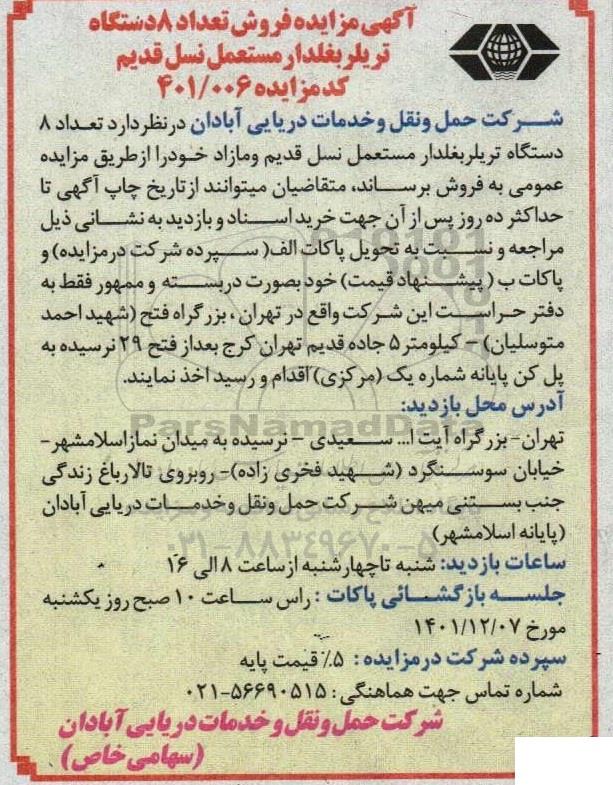 آگهی مزایده فروش تعداد ۸ دستگاه
تریلر بغلدار مستعمل نسل قدیم
کد مزایده ۴۰۱/۰۰۶
شرکت حمل ونقل وخدمات دریایی آبادان درنظردارد تعداد ۸
دستگاه تریلربغلدار مستعمل نسل قدیم ومازاد خودرا ازطریق مزایده
عمومی به فروش برساند، متقاضیان میتوانند ازتاریخ چاپ آگهی تا
حداکثر ده روز پس از آن جهت خرید اسناد و بازدید به نشانی ذیل
مراجعه و نسبت به تحویل پاکات الف( سپرده شرکت درمزایده) و
پاکات ب ( پیشنهاد قیمت) خود بصورت دربسته و ممهور فقط به
دفتر حراست این شرکت واقع در تهران ، بزرگراه فتح (شهید احمد
متوسلیان) – کیلومتر ۵ جاده قدیم تهران کرج بعداز فتح ۲۹ نرسیده به
پل کن پایانه شماره یک (مرکزی) اقدام و رسید اخذ نمایند.
آدرس محل بازدید:
تهران- بزرگراه آیت ا... سعیدی – نرسیده به میدان نمازاسلامشهر-
خیابان سوسنگرد (شهید فخری زاده)- روبروی تالارباغ زندگی
جنب بستنی میهن شرکت حمل ونقل وخدمات دریایی آبادان
(پایانه اسلامشهر)
ساعات بازدید: شنبه تاچهارشنبه ازساعت ۸ الی ۱۶
جلسه بازگشائی پاکات : راس ساعت ۱۰ صبح روز یکشنبه
مورخ ۱۴۰۱/۱۲/۰۷
سپرده شرکت درمزایده : ۵٪ قیمت پایه
شماره تماس جهت هماهنگی: ۵۶۶۹۰۵۱۵-۰۲۱
شرکت حمل ونقل و خدمات دریایی آبادان
(سهامی خاص)
ParsNamadData
۰۲۱-۸۸۳۴۹۶۷۰-۵